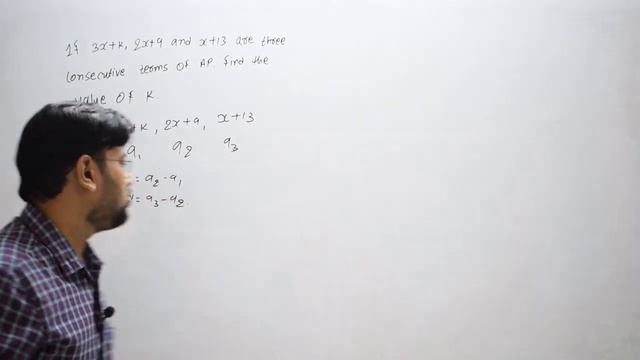 If 3x+k, 2x+9 and x+13 are three
consecutive terms of AP. find the
value of k.
+k, 2x+9, x+13
a₁ a₂ a₃
= a₂-a₁
= a₃-a₂.